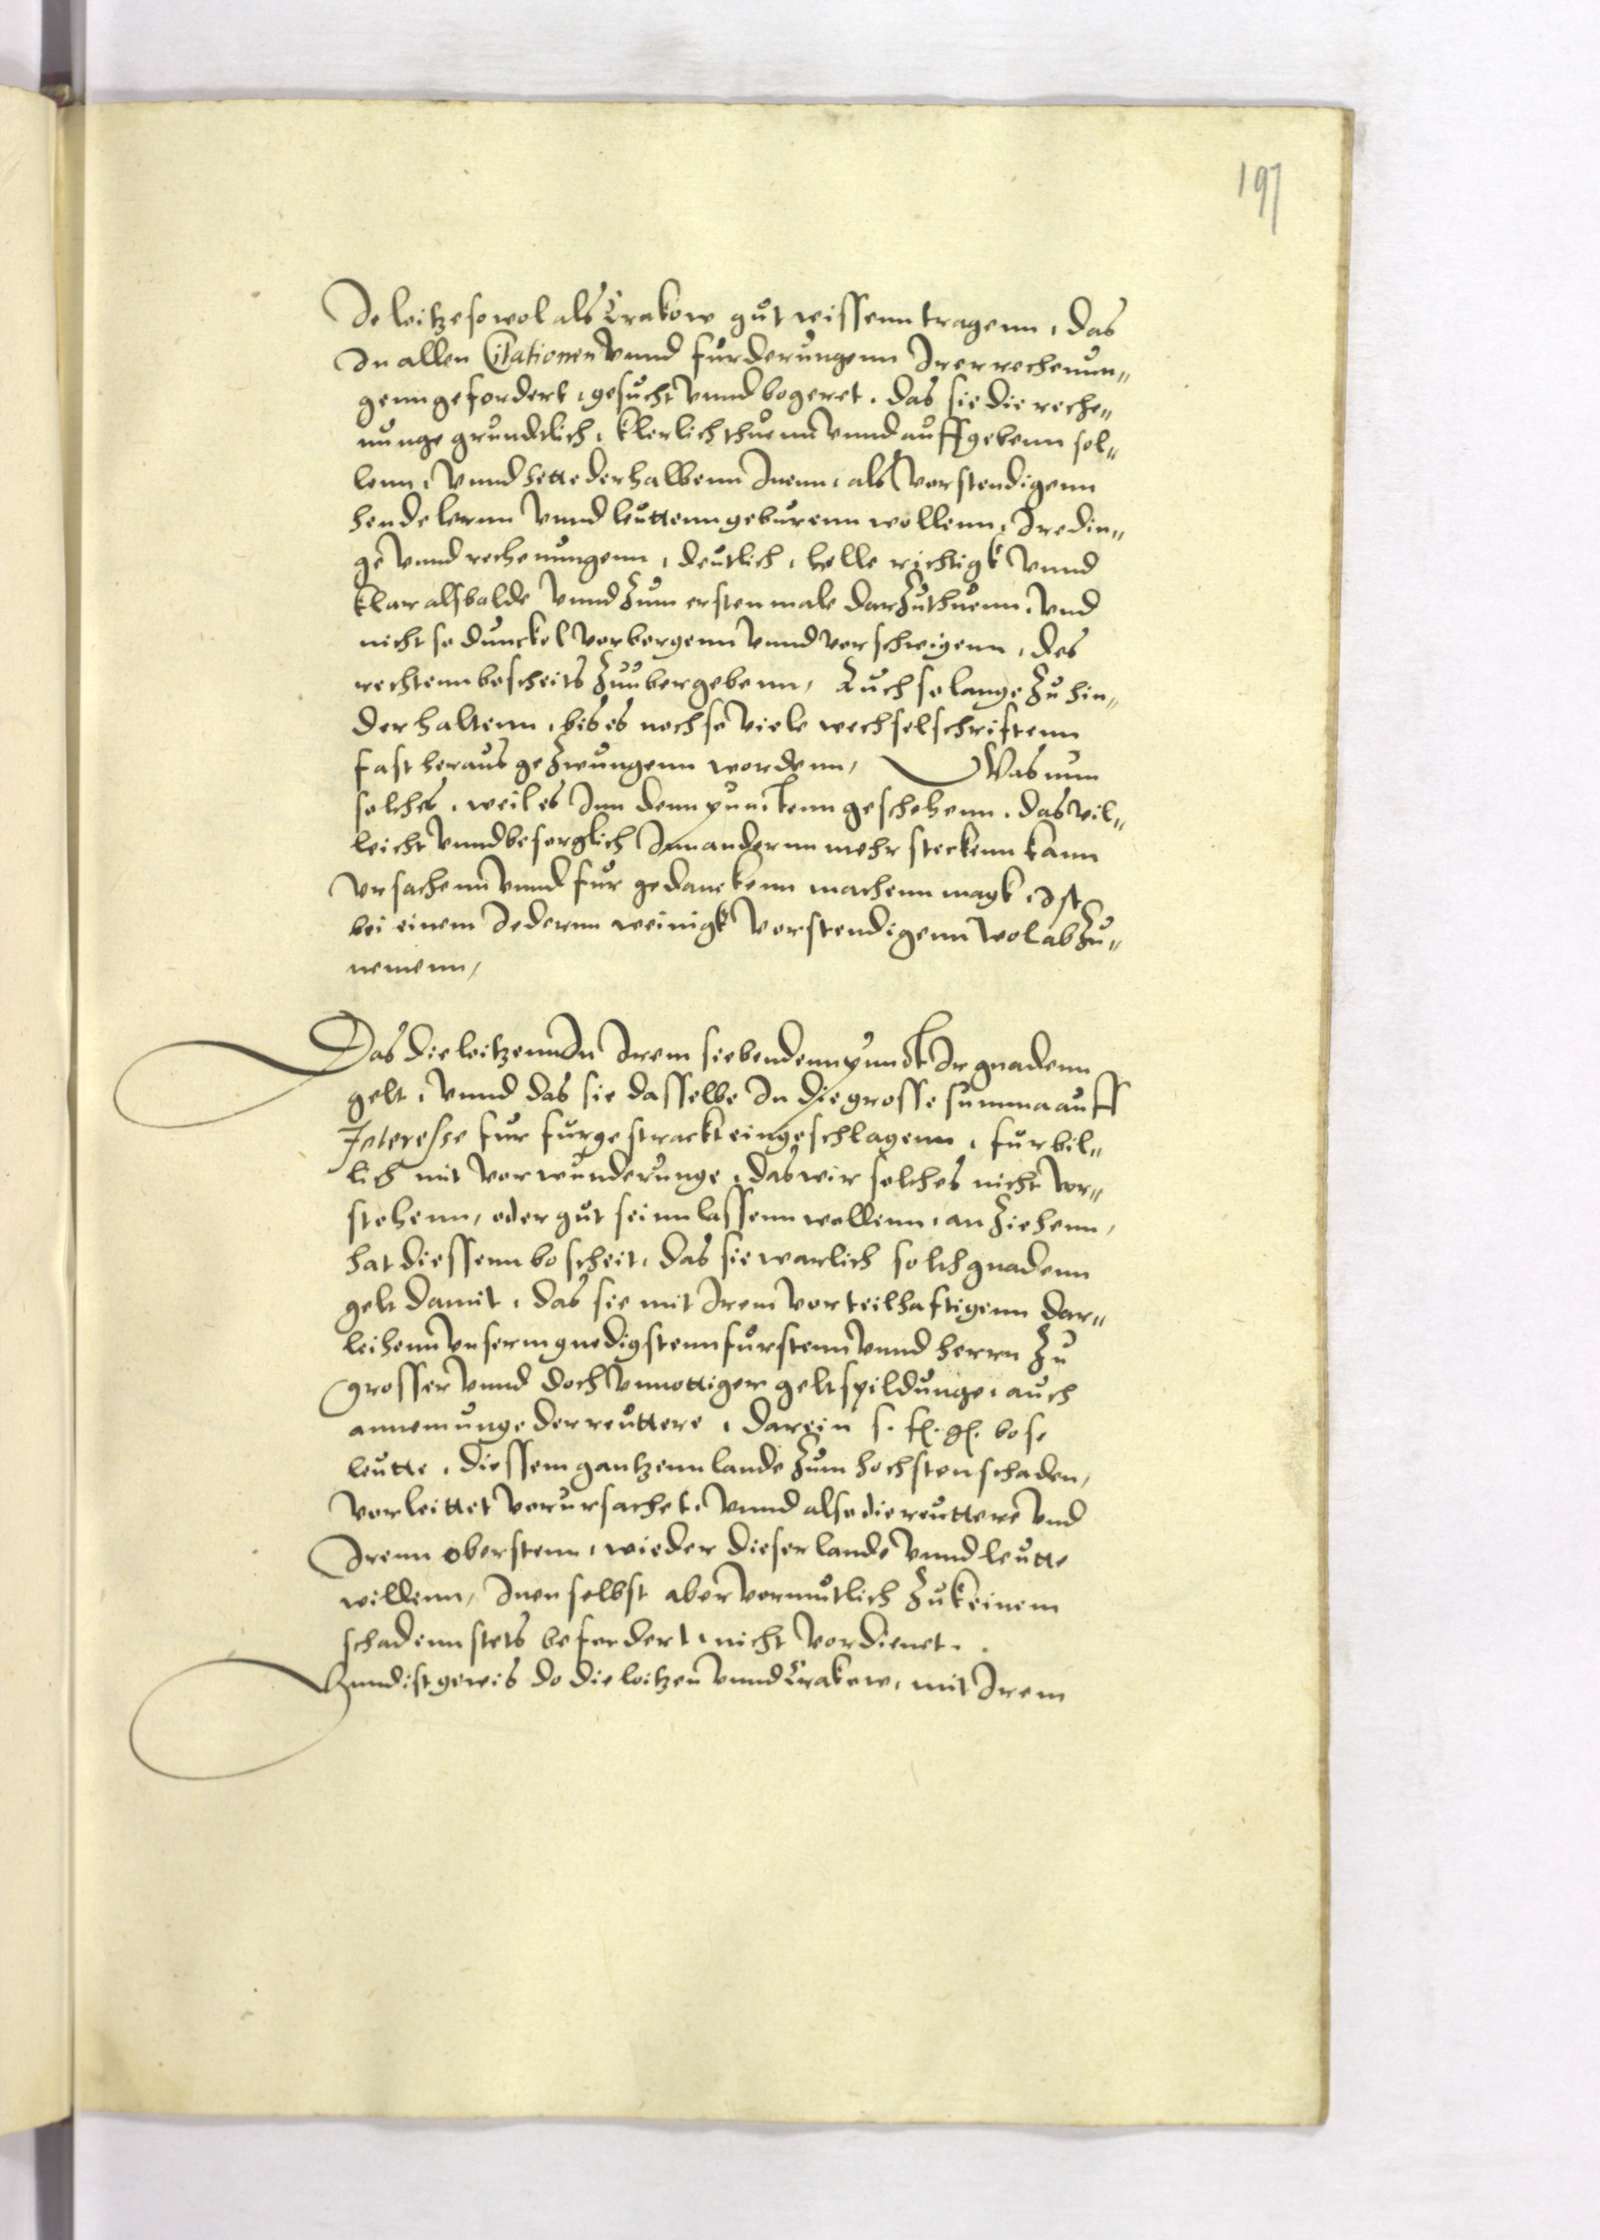 197
De loitze so wol als Krakow gut wissenn tragenn, das
In allen Citationen vnnd furderungenn Irer rechenun„
genn gefordert, gesucht vnnd begeret, das sie die reche„
nunge gruntlich, klerlich thuenn vnnd auffgebenn sol„
lenn, vnnd hette derhalbenn Inenn, als vorstendigenn
hendelernn vnnd leuttenn geburenn wollenn, Ire din„
ge vnnd rechenungenn, deutlich, helle richtigk vnnd
klar alsbalde vnnd zum ersten male darzuthuenn, vnd
nicht so dunckel vorbergenn vnnd vorschweigenn, des
rechtenn bescheits zuubergebenn, Auch so lange zu hin„
der haltenn, bis es noch so viele wechselschriftenn
fast heraus gezwungenn wordenn, Was nun
solches, weil es Inn denn punctenn geschehenn, das vil„
leicht vnnd besorglich Inn andernn mehr steckenn kann
vrsachenn vnnd fur gedanckenn machenn magk, Ist
bei einem Iedernn weinigk vorstendigenn wol abzu„
nemenn,
Das die loitzenn In Irem siebendenn punckt Ir gnadenn
gelt, vnnd das sie dasselbe In die grosse summa auff
Interesse fur furgestrackt eingeschlagenn, fur bil„
lich mit vorwunderunge, das wir solches nicht vor„
stehenn, oder gut sein lassenn wollenn, anziehenn,
hat diessenn bescheit, das sie warlich solch gnadenn
gelt damit, das sie mit Irem vorteilhaftigenn dar„
leihenn vnserm gnedigstenn furstenn vnnd herrn zu
grosser vnnd doch vnnottiger geltspildunge, auch
annemunge der reuttere, darein s. f. g. bose
leutte, diessem gantzenn lande zum hochsten schaden,
vorleittet vorursachet, vnnd also die reuttere vnd
Irenn oberstenn, wieder dieser lande vnnd leutte
willenn, Inen selbst aber vormutlich zu keinem
schadenn stets befordert, nicht vordienet.
Vnnd ist gewis do die loitzen vnnd Krakow, mit Irem